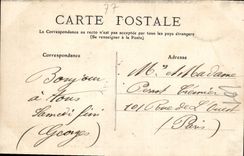 77
CARTE POSTALE
La Correspondance au recto n'est pas acceptée par tous les pays étrangers
(Se renseigner à la Poste)
Correspondance
Adresse
Bonjour
à Vous
Samedi soir
(Georges)
M. et Madame
Perrot
101 Rue de l'Ouest
(Paris)